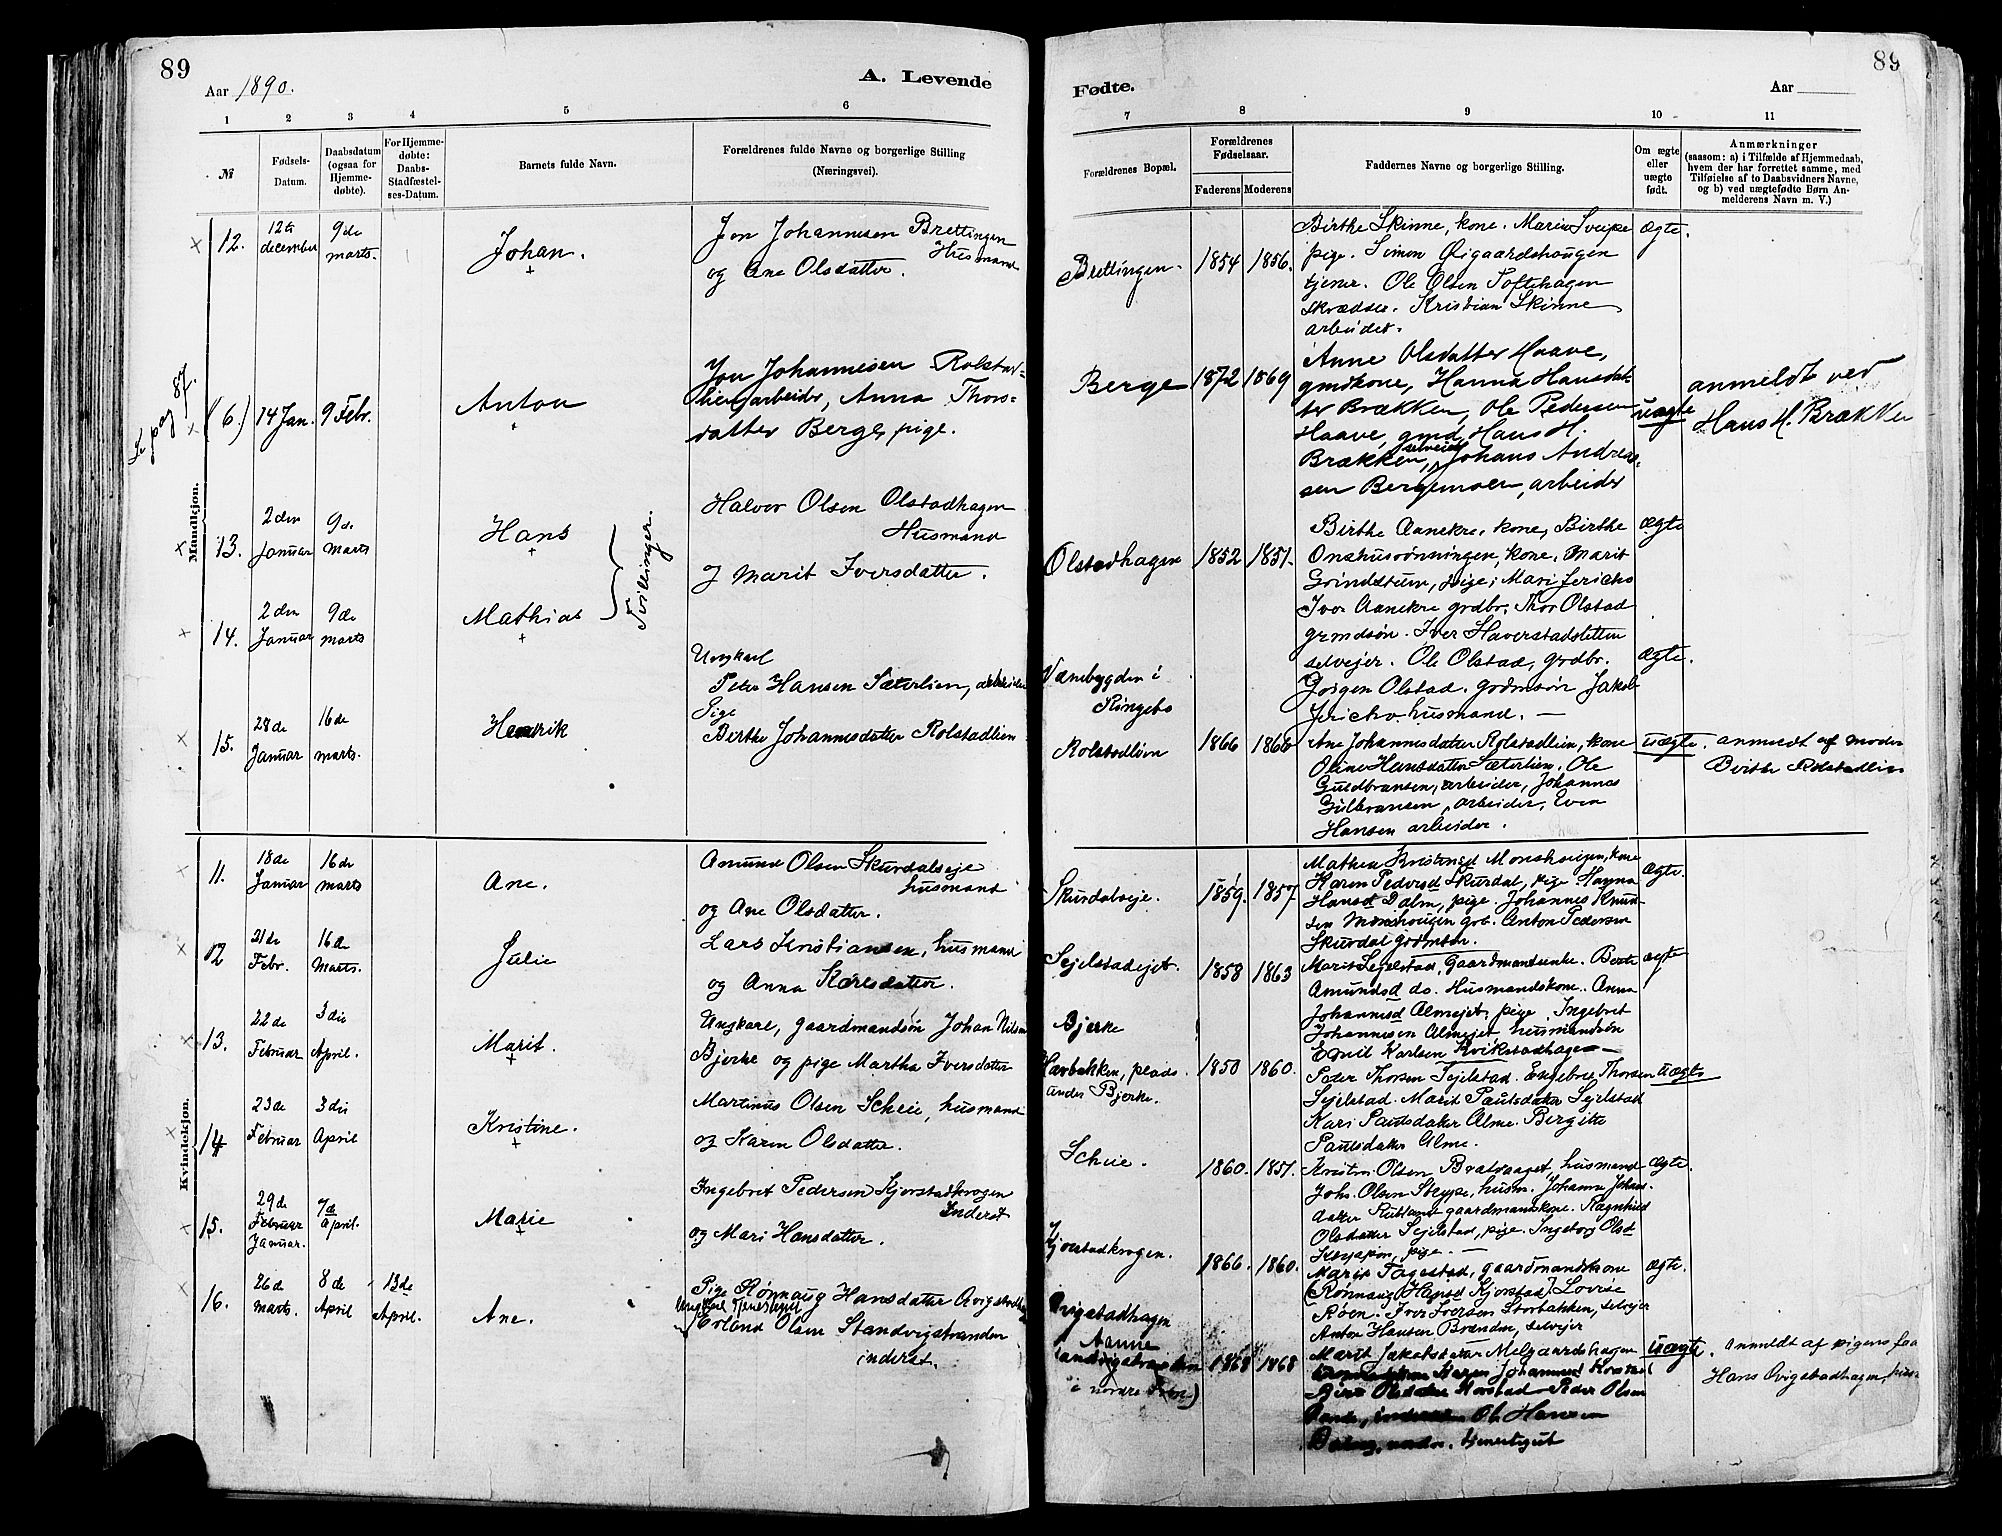 89
Aar 1890.
A. Levende
1 2 3 4 5 6
№
Fødsels-
Datum.
Daabsdatum
(ogsaa for
Hjemme-
døbte).
For Hjemme-
døbte:
Daabs-
Stadfæstel-
ses-Datum.
Barnets fulde Navn.
Forældrenes fulde Navne og borgerlige Stilling
(Næringsvei).
Mandkjøn.
12.
12te
december
9de
marts.
Johan.
Jon Johannesen Brettingen
Husmand
og Ane Olsdatter.
pag 87.
(6.) 14 Jan. 9 Febr.
Anton
Jon Johannesen Rolstad-
arbeider, Anna Thors-
datter Berge, pige.
13.
2den
Januar
9de
marts
Hans
Tvillinger.
Halvor Olsen Olstadhagen
Husmand
Marit Iversdatter.
14.
2den
Januar
9de
marts
Mathias
15.
28de
Januar
16de
marts.
Hendrik
Ungkarl
Peter Hansen Sæterlien, arbeider
Pige
Berthe Johannesdatter Rolstadlien
Kvindekjøn.
11.
18de
Januar
16de
marts
Ane.
Amund Olsen Skurdalseje
husmand
og Ane Olsdatter.
12
21de
Febr.
16de
Marts.
Julie
Lars Kristiansen, husmand
og Anna Karlsdatter.
13.
22de
Februar
3die
April.
Marit.
Ungkarl, gaardmandsøn Johan Nilsen
Bjerke og pige Martha Iversdatter
14
23de
Februar
3die
April
Kristine.
Martinus Olsen Scheie, husmand
og Karen Olsdatter.
15.
29de
Februar
Januar.
7de
April.
Marie
Ingebret Pedersen Kjorstadkrogen
Inderst
og Mari Hansdatter.
16.
26de
marts.
8de
April
13de
April.
Ane.
Pige Rønnaug Hansdatter
Ungkarl Tjenestegut
Erland Olsen Standvigstranden
inderst.
89
Fødte.
Aar
7 8 9 10 11
Forældrenes Bopæl.
Forældrenes
Fødselsaar.
Faderens Moderens
Faddernes Navne og borgerlige Stilling.
Om ægte
eller
uægte
født.
Anmærkninger
(saasom: a) i Tilfælde af Hjemmedaab,
hvem der har forrettet samme, med
Tilføielse af to Daabsvidners Navne,
og b) ved uægtefødte Børn An-
melderens Navn m. V.)
Brettingen. 1854 1856.
Birthe Skinne, kone. Marie Sveipe
pige. Simen Øigaardshougen
tjener. Ole Olsen Toftehagen
Skrædder. Kristian Skinne
arbeider.
ægte.
Berge 1872 1869
Anne Olsdatter Haave,
gmdkone, Hanna Hansdat-
ter Brækken, Ole Pedersen
Haave, gmd, Hans H.
Brækken, selveier, Johans Andrea-
sen Bergemoen, arbeider
uægte
anmeldt ved
Hans H. Brækken
Olstadhagen 1852 1851.
Birthe Aanekre, kone, Birthe
Onshusrønningen, kone, Marit
Grindstuen, pige, Mari Jericho
Iver Aanekre grdbr. Thor Olstad
grmdsøn. Iver Haverstadsletten
selvejer. Ole Olstad, grdbr.
Jørgen Olstad, grdmsøn Jakob
Jericho husmand.
ægte
ægte.
Vænebygden i
Ringebo
Rolstadlien 1866 1866
Ane Johannesdatter Rolstadlien, kone
Oline Hansdatter Sæterlien. Ole
Guldbransen, arbeider, Johannes
Gulbransen, arbeider, Even
Hansen arbeider.
uægte.
anmeldt af moder
Berthe Rolstadlien
Skurdalseje. 1859. 1857.
Mathea Kristensd Monshougen, kone
Karen Pedersd Skurdal, pige. Hanna
Hansd Dalm, pige. Johannes Knud-
sen Monshougen grb. Anton Pedersen
Skurdal grdmsøn.
ægte.
Sejelstadejet. 1858 1863
Marit Sejelstad, Gaardmandsenke. Berte
Amundsd do. Husmandskone. Anna
Johannesd Almejet, pige. Ingebret
Johannesen Almejet husmandsøn
Emil Karlsen Kvikstadhagen
ægte
Bjerke
Havbakken, plads
under Bjerke. 1850 1860.
Peder Thorsen Sejelstad. Engebret Thorsen
Sejelstad. Marit Paulsdatter Sejelstad
Kari Paulsdatter Alme. Bergitte
Paulsdatter Alme.
uægte
Scheie. 1860. 1857.
Olsen Bratvaaget, husmand
Johs. Olsen Steype, husm. Johanne Johans-
datter gaardmandskone. Ragnhild
Olsdatter Sejelstad, pige. Ingeborg Olsd
pige.
ægte.
Kjorstadkrogen. 1866. 1860.
Marit Fagestad, gaardmandskone
(Rønnaug Hansd Kjorstad) Lovise
Røen. Iver Iversen Storbakken, selvejer
Anton Hansen Brænden, selvejer
ægte.
1868 1868
Marit Jakobsdatter Melgaardshagen
Karen Johannesd
Peder Olsen
Ole Hansen
tjenestegut
uægte.
Anmeldt af pigens faa
Hans